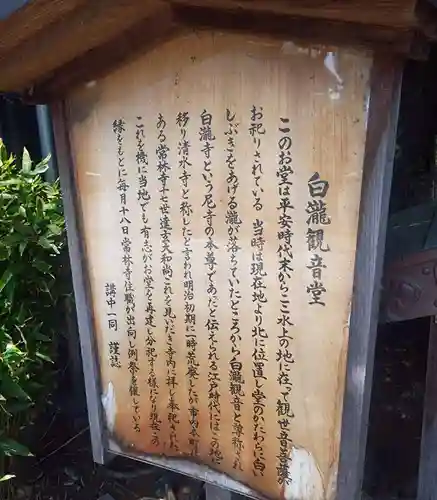 白瀧観音堂
このお堂は平安時代末からここ水上の地に在って観世音菩薩が
お祀りされている 当時は現在地より北に位置し堂のかたわらに白い
しぶきをあげる瀧が落ちていたところから白瀧観音と尊称され
白瀧寺という尼寺の本尊であったと伝えられる江戸時代にはこの地に
移り清水寺と称したと言われ明治初期に一時荒廃したが市内
ある常林寺十七世 和尚これを見いだき寺内に拝し奉祀された
これを機に当地でも有志がお堂を再建し分祀する様になり現在
縁をもとに毎月十八日常林寺住職が出向し例祭を催している
講中一同 謹誌